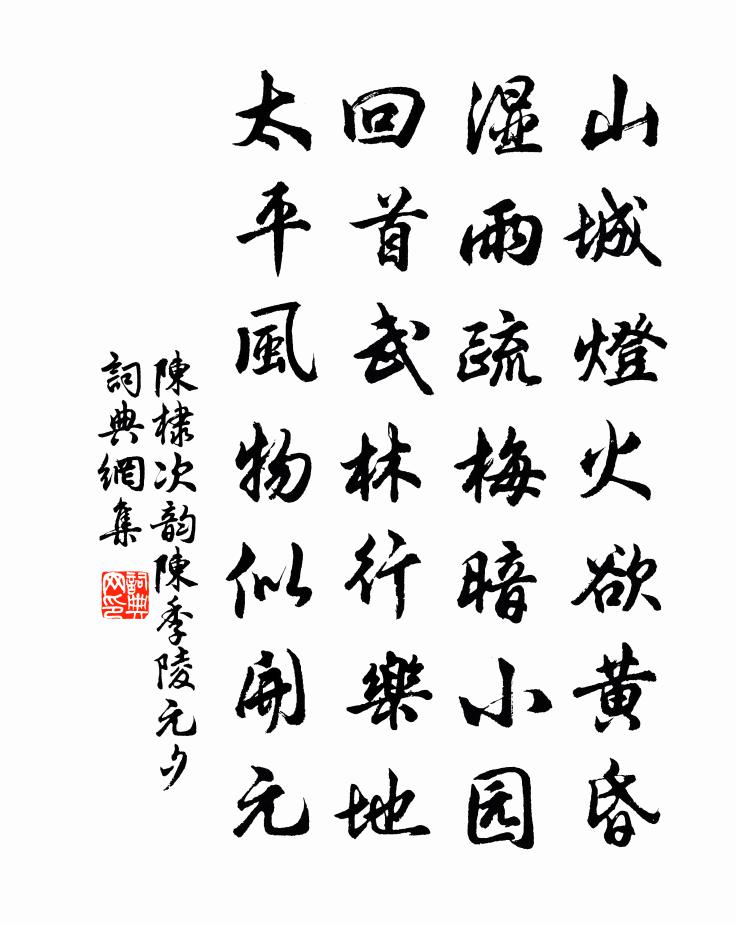 山城燈火欲黄昏
湿雨疏梅暗小园
回首武林行樂地
太平風物似開元
陳棣次韵陳季陵元夕
詞典網集
詞典
网印